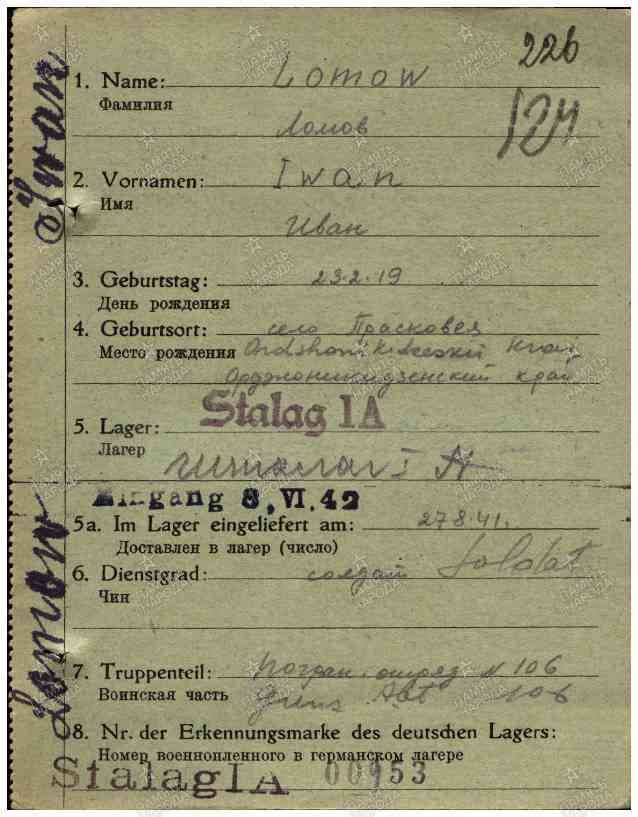 226
124
1. Name: Lomow
Фамилия
Ломов
2. Vornamen: Iwan
Имя
Иван
3. Geburtstag: 23.2.19
День рождения
4. Geburtsort: село Прасковея
Место рождения край
Орджоникидзенский край
Stalag IA
5. Lager:
Лагер
шталаг I А
Eingang 8. VI. 42
5a. Im Lager eingeliefert am: 27.8.41.
Доставлен в лагер (число)
6. Dienstgrad: солдат Soldat
Чин
7. Truppenteil: Погран. отряд N 106
Воинская часть Grens. Abt 106
8. Nr. der Erkennungsmarke des deutschen Lagers:
Номер военнопленного в германском лагере
Stalag IA 00953
Lomow Iwan
ПАМЯТЬ НАРОДА